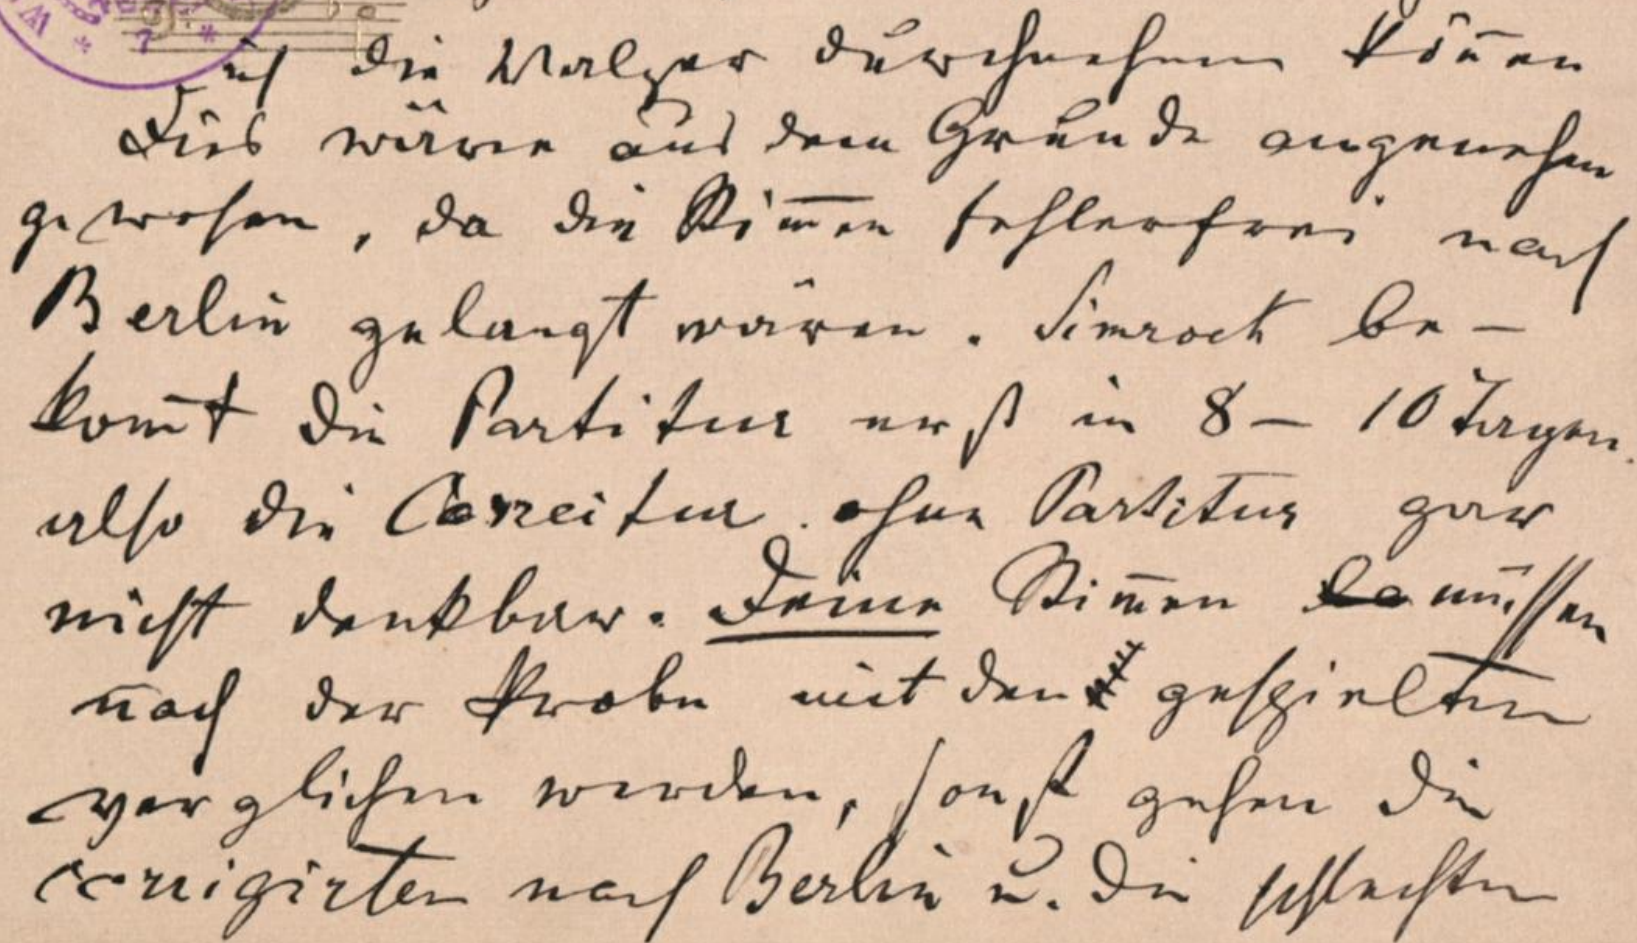 ich die Walzer durchnehmen kön̄en
Dies wäre aus dem Grunde angenehm
gewesen, da die Stim̄en fehlerfrei nach
Berlin gelangt wären. Simrock be-
kom̄t die Partitur erst in 8 - 10 Tagen.
also die Correctur ohne Partitur gar
nicht denkbar. Deine Stim̄en müssen
nach der Probe mit den gespielten
verglichen werden, sonst gehen die
corrigirten nach Berlin u. die schlechten